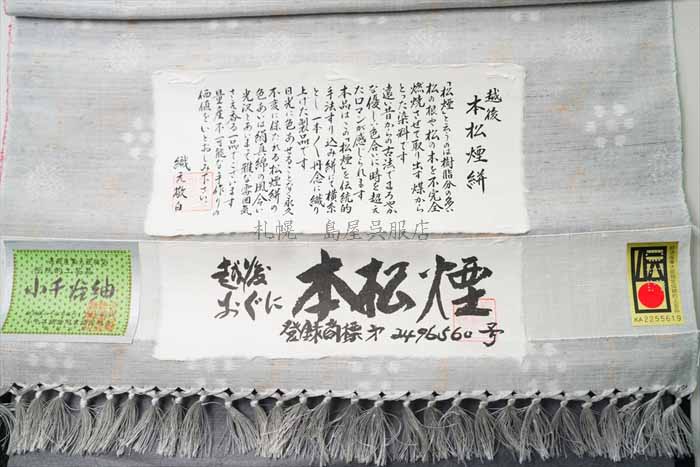 越後
本松煙絣
「松煙」と云うのは樹脂分の多い
松の根や松の木を不完全
燃焼させて取り出す煤から
とった染料です
遠い昔からの古法でまろやか
な優しい色合いに時を超え
たロマンが感じられます
本品はこの「松煙」を伝統的
手法すり込み絣にて横糸
とし一本く丹念に織り
上げた製品です
日光に色あせることなく永久
不変に保たれる松煙絣の
色あいは絹真綿の風合い
光沢とあいまって雅な雰囲気
さえ香る一品でございます
量産不可能な手作りの
価値をいとおしみ下さい
織元敬白
札幌 島屋呉服店
越後
おぐに
本松煙
登録商標第2496560号
小千谷紬
伝
KA2255619